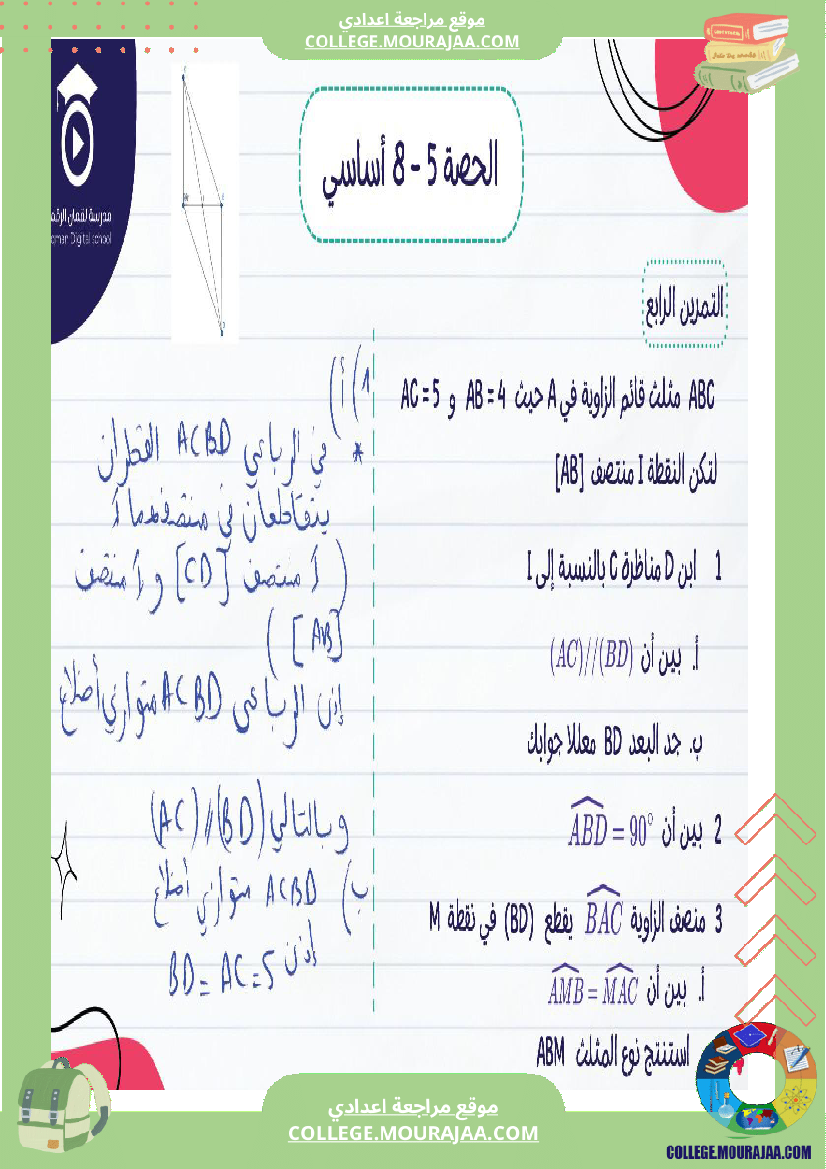 موقع مراجعة اعدادي
COLLEGE.MOURAJAA.COM
مدرسة لقمان الرقم
oman Digital school
الحصة 5 - 8 أساسي
التمرين الرابع
ABC مثلث قائم الزاوية في A حيث AB = 4 و AC = 5
لتكن النقطة I منتصف [AB]
1 ابن D مناظرة C بالنسبة إلى I
أ. بين أن (AC)//(BD)
ب. جد البعد BD معللا جوابك
2 بين أن ABD = 90°
3 منصف الزاوية BAC يقطع (BD) في نقطة M
أ. بين أن AMB = MAC
استنتج نوع المثلث ABM
1) أ)
* في الرباعي ACBD القطران
يتقاطعان في منتصفهما I
(I منتصف [CD] و I منتصف
[AB])
إذن الرباعي ACBD متوازي أضلاع
وبالتالي (AC)//(BD)
ب) ACBD متوازي أضلاع
إذن BD = AC = 5
موقع مراجعة اعدادي
COLLEGE.MOURAJAA.COM
COLLEGE.MOURAJAA.COM